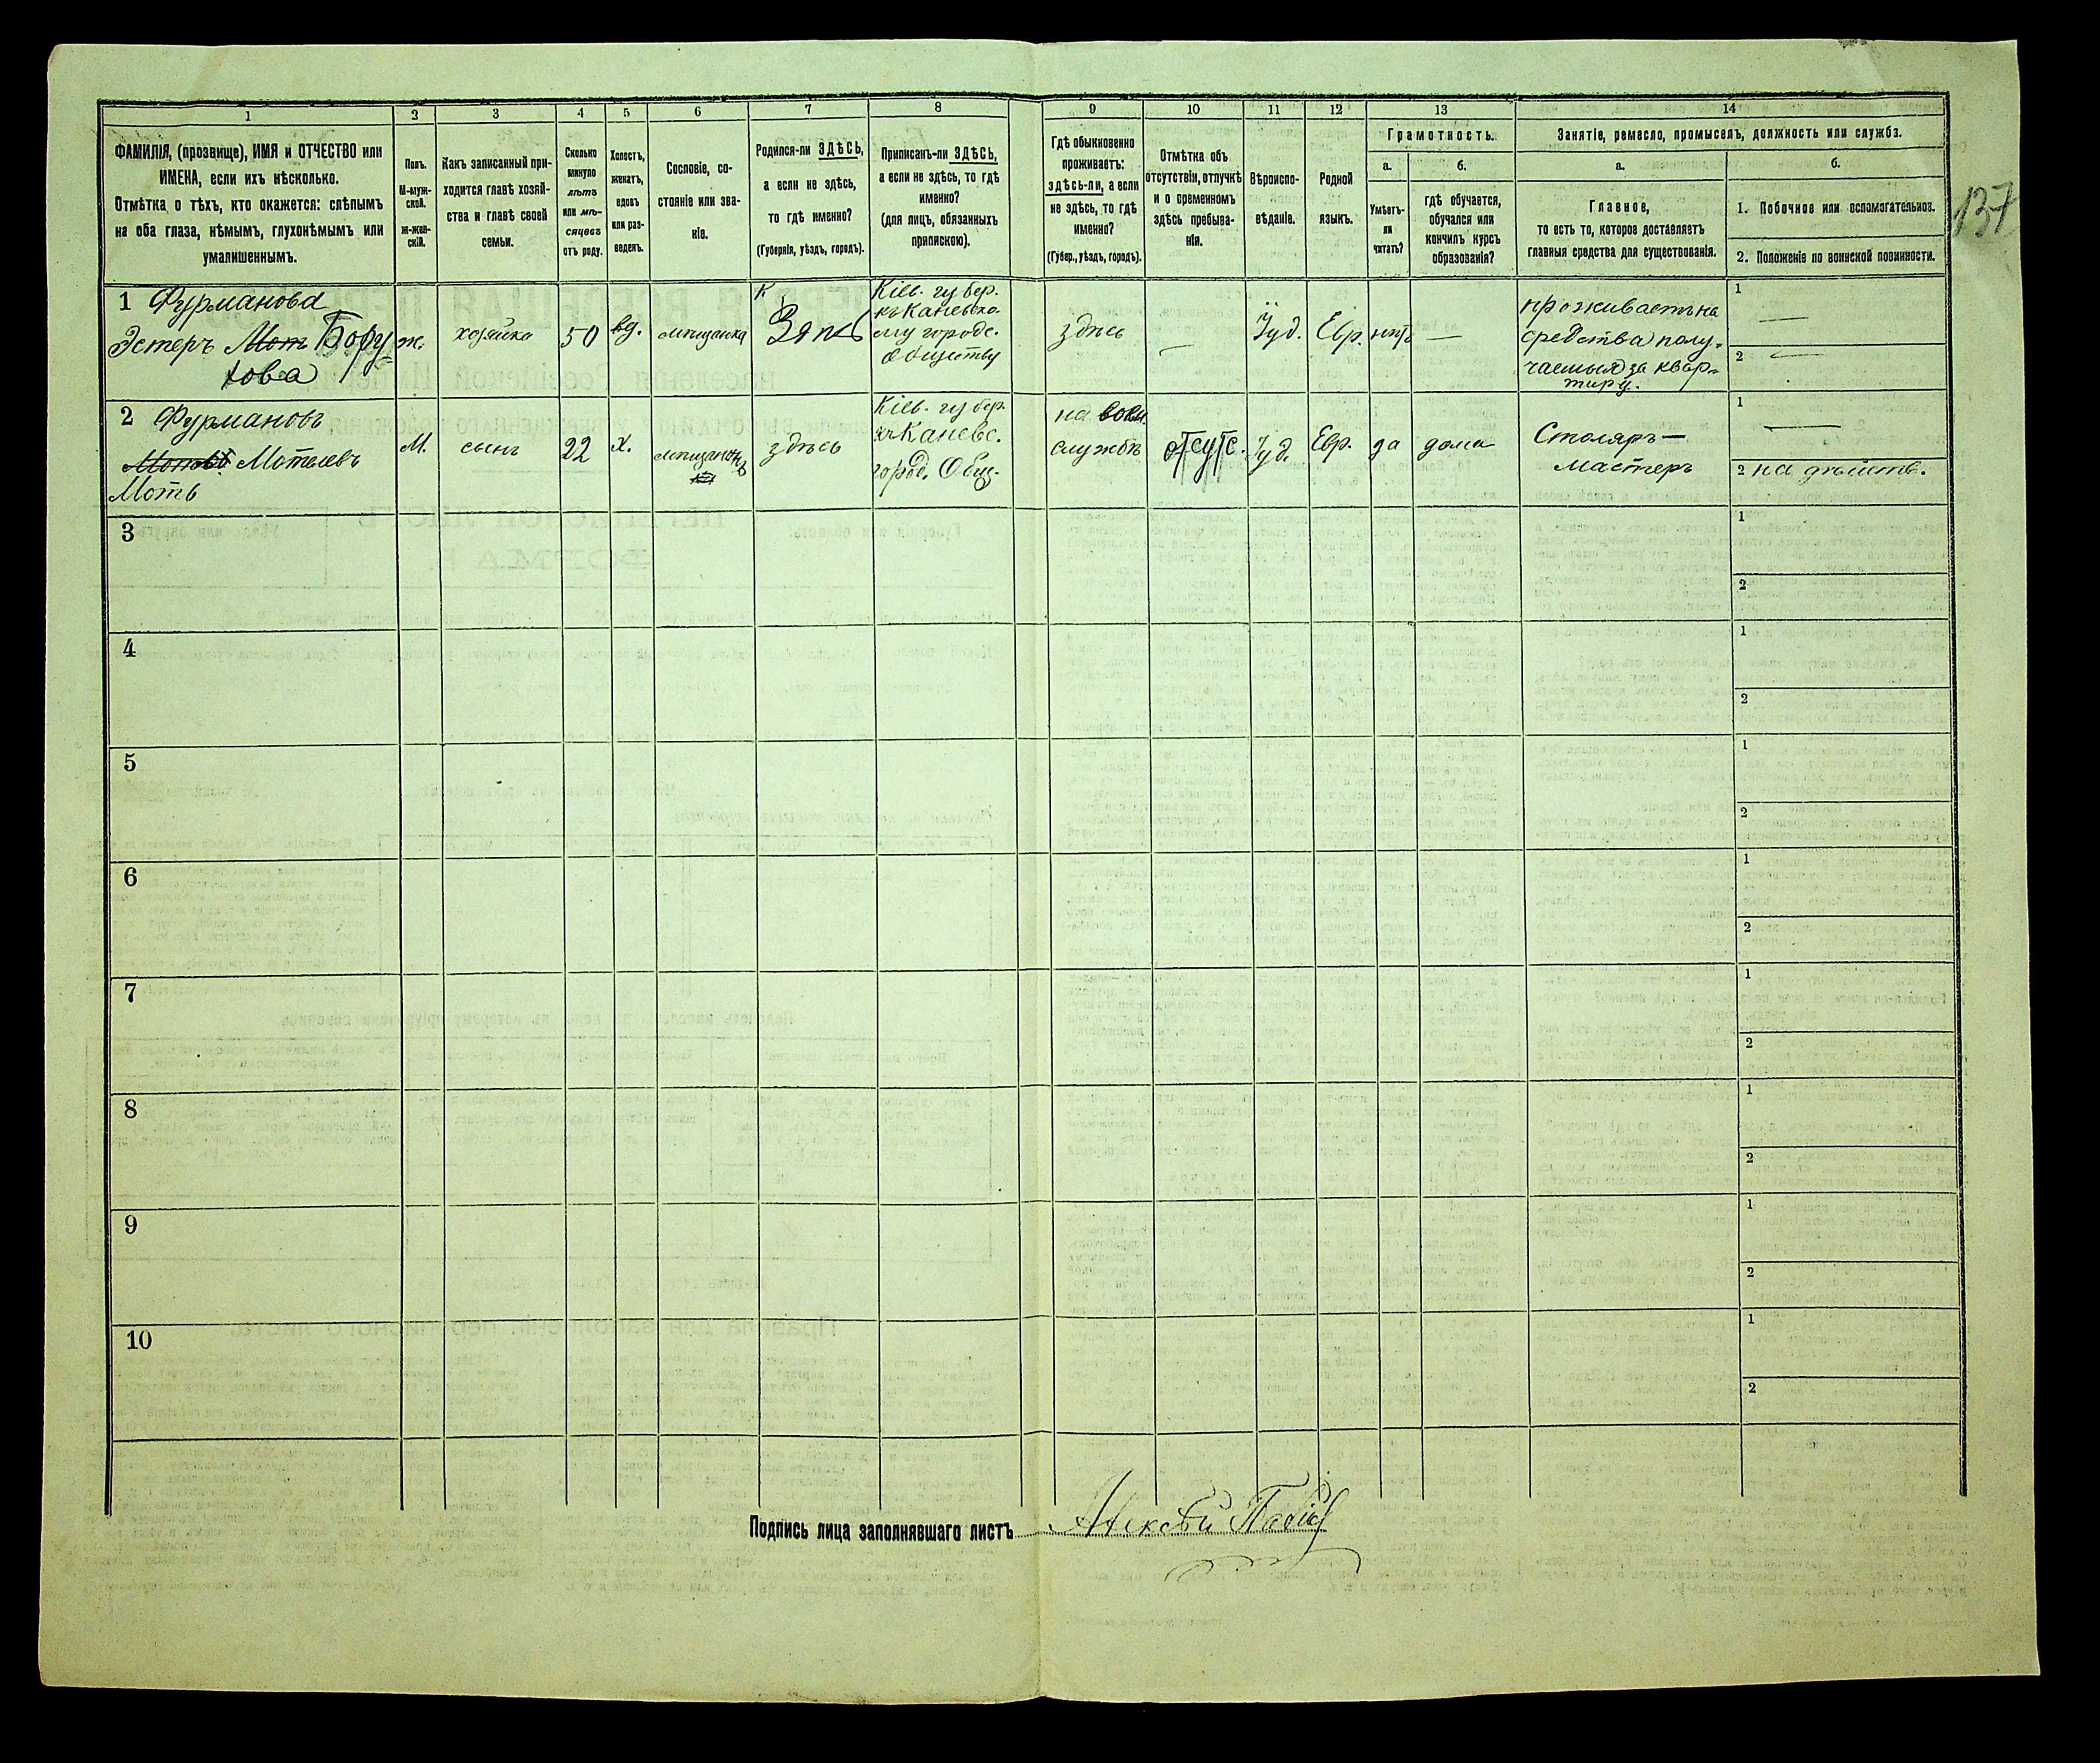 1
2
3
4
5
6
7
8
9
10
11
12
13
14
ФАМИЛІЯ, (прозвище), ИМЯ и ОТЧЕСТВО или
ИМЕНА, если ихъ нѣсколько.
Отмѣтка о тѣхъ, кто окажется: слѣпымъ
на оба глаза, нѣмымъ, глухонѣмымъ или
умалишеннымъ.
Полъ.
М-муж-
ской.
ж-жен-
скій.
Какъ записанный при-
ходится главѣ хозяй-
ства и главѣ своей
семьи.
Сколько
минуло
лѣтъ
или мѣ-
сяцевъ
отъ роду.
Холостъ,
женатъ,
вдовъ
или раз-
веденъ.
Сословіе, со-
стояніе или зва-
ніе.
Родился-ли ЗДѢСЬ,
а если не здѣсь,
то гдѣ именно?
(Губернія, уѣздъ, городъ).
Приписанъ-ли ЗДѢСЬ,
а если не здѣсь, то гдѣ
именно?
(для лицъ, обязанныхъ
припискою).
Гдѣ обыкновенно
проживаетъ:
здѣсь-ли, а если
не здѣсь, то гдѣ
именно?
(Губер., уѣздъ, городъ).
Отмѣтка объ
отсутствіи, отлучкѣ
и о временномъ
здѣсь пребыва-
ніи.
Вѣроиспо-
вѣданіе.
Родной
языкъ.
Грамотность.
а.
Умѣетъ-
ли
читать?
б.
гдѣ обучается,
обучался или
кончилъ курсъ
образованія?
Занятіе, ремесло, промыселъ, должность или служба.
а.
Главное,
то есть то, которое доставляетъ
главныя средства для существованія.
б.
1. Побочное или вспомагательное.
2. Положеніе по воинской повинности.
137
1 Фурманова
Эстеръ Моть Бору
хова
ж.
хозяйка
50
вд.
мѣщанка
Здѣсь
Кіев. губер.
къ Каневско-
му городс.
обществу
здѣсь
—
Іуд.
Евр.
нѣтъ
—
проживаетъ на
средства полу-
чаемыя за квар-
тиру.
1 —
2 —
2 Фурмановъ
Мотелевъ
Моть
М.
сынъ
22
х.
мѣщанинъ
здѣсь
Кіев. губер.
къ Каневс.
город. Общ.
на воен.
службѣ
отсутс.
Іуд.
Евр.
да
дома
Столяръ—
мастеръ
1 —
2 на дѣйств.
3
1
2
4
1
2
5
1
2
6
1
2
7
1
2
8
1
2
9
1
2
10
1
2
Подпись лица заполнявшаго листъ Алексѣй